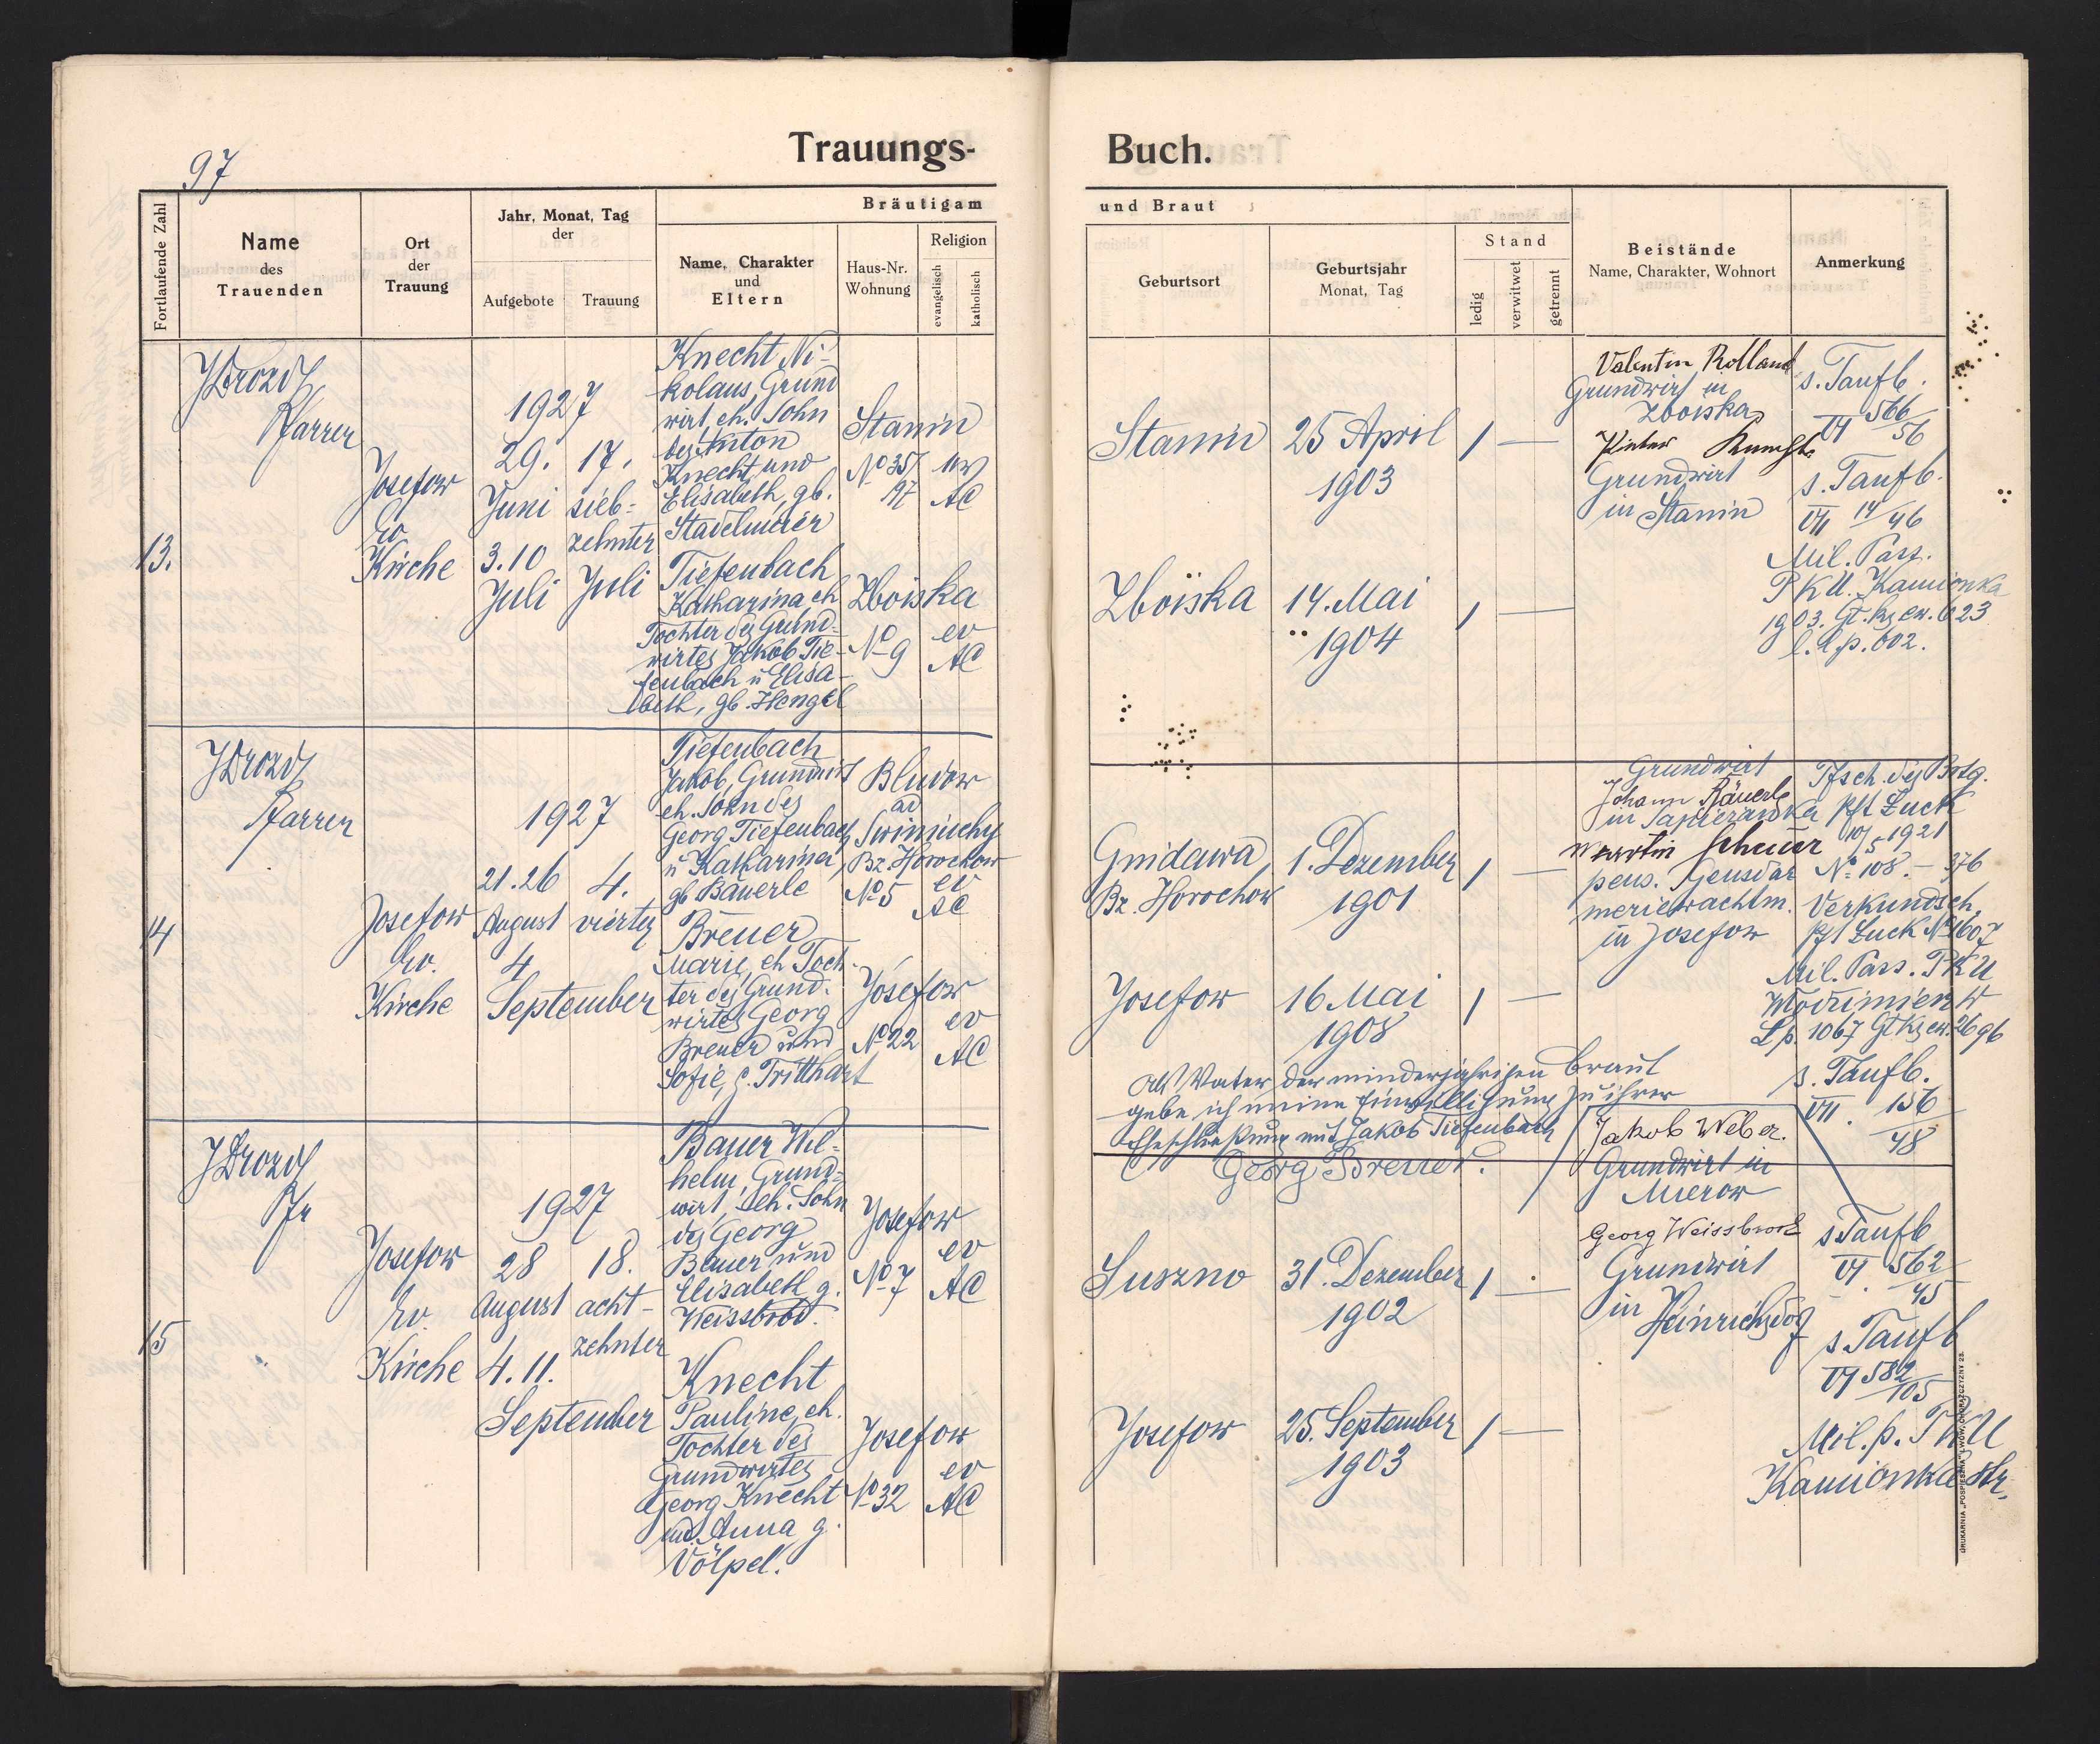 97
Trauungs-
Fortlaufende Zahl
Name
des
Trauenden
Ort
der
Trauung
Jahr, Monat, Tag
der
Aufgebote
Trauung
Bräutigam
Name, Charakter
und
Eltern
Haus-Nr.
Wohnung
Religion
evangelisch
katholisch
13.
JDrozd
Pfarrer
Josefow
Ev.
Kirche
1927
29.
Juni
3.10
Juli
17.
sieb-
zehnter
Juli
Knecht Ni-
kolaus, Grund
wirt, eh. Sohn
des Anton
Knecht und
Elisabeth, gb.
Stadelmeier
Stanin
No 35/
197
ev
AC
Tiefenbach
Katharina eh
Tochter des Grund-
wirtes Jakob Tie-
fenbach u Elisa-
beth, gb. Hengel
Zboiska
No 9
ev
AC
14
JDrozd
Pfarrer
Josefow
Ev.
Kirche
1927
21.26
August
4
September
4.
vierter
Tiefenbach
Jakob, Grundwirt
eh. Sohn des
Georg Tiefenbach
u Katharina,
gb Bäuerle
Bludow
ad
Swiniuchy
Bz. Horochow
No 5
ev
AC
Breuer
Marie, eh Toch-
ter des Grund-
wirtes Georg
Breuer und
Sofie, g. Tritthart
Josefow
No 22
ev
AC
15
JDrozd
Pfr
Josefow
Ev.
Kirche
1927
28
August
4.11.
September
18.
acht-
zehnter
Bauer Wil-
helm, Grund-
wirt, eh. Sohn
des Georg
Bauer und
Elisabeth g.
Weissbrod.
Josefow
No 7
ev
AC
Knecht
Pauline, eh.
Tochter des
Grundwirtes
Georg Knecht
und Anna g.
Völpel.
Josefow
No 32
ev
AC
Buch.
und Braut
Geburtsort
Geburtsjahr
Monat, Tag
Stand
ledig
verwitwet
getrennt
Beistände
Name, Charakter, Wohnort
Anmerkung
Stanin
25 April
1903
1 —
Valentin Rolland
Grundwirt in
Zboiska
Grundwirt
in Stanin
s. Taufb.
VI 566/56
s. Taufb.
VII 14/46
Mil. Pars.
PKU. Kamionka
1903. Gt. ks ew. 623
l.d.p. 602.
Zboiska
14. Mai
1904
1 —
Gnidawa,
Bz. Horochow
1. Dezember
1901
1 —
Grundwirt
Johann Bäuerle
in Sapiezanka
Martin Scheuer
pens. Gensdar
meriewachtm.
in Josefow
Tfsch. des Botg.
Pft Luck
10/5 1921
No 108. — 376
Verkundsch.
Pft Luck No 1607
Mil. Pars. PKU
Wlodzimierz W
L.p. 1067 Gt ks ew. 2696
s. Taufb.
VII. 156/48
Josefow
16 Mai
1908
1 —
Als Vater der minderjährigen Braut
gebe ich meine Einwilligung zu ihrer
Eheschließung mit Jakob Tiefenbach
Georg Breuer.
Jakob Weber.
Grundwirt in
Mierow
Suszno
31. Dezember
1902
1 —
Georg Weissbrod
Grundwirt
in Heinrichsdorf
s Taufb
VI 562/45
s. Taufb
VI 582/105
Mil. p. PKU
Kamionka str.
Josefow
25. September
1903
1 —
DRUKARNIA „POSPIESZNA” LWÓW, CHORĄŻCZYZNY 28.